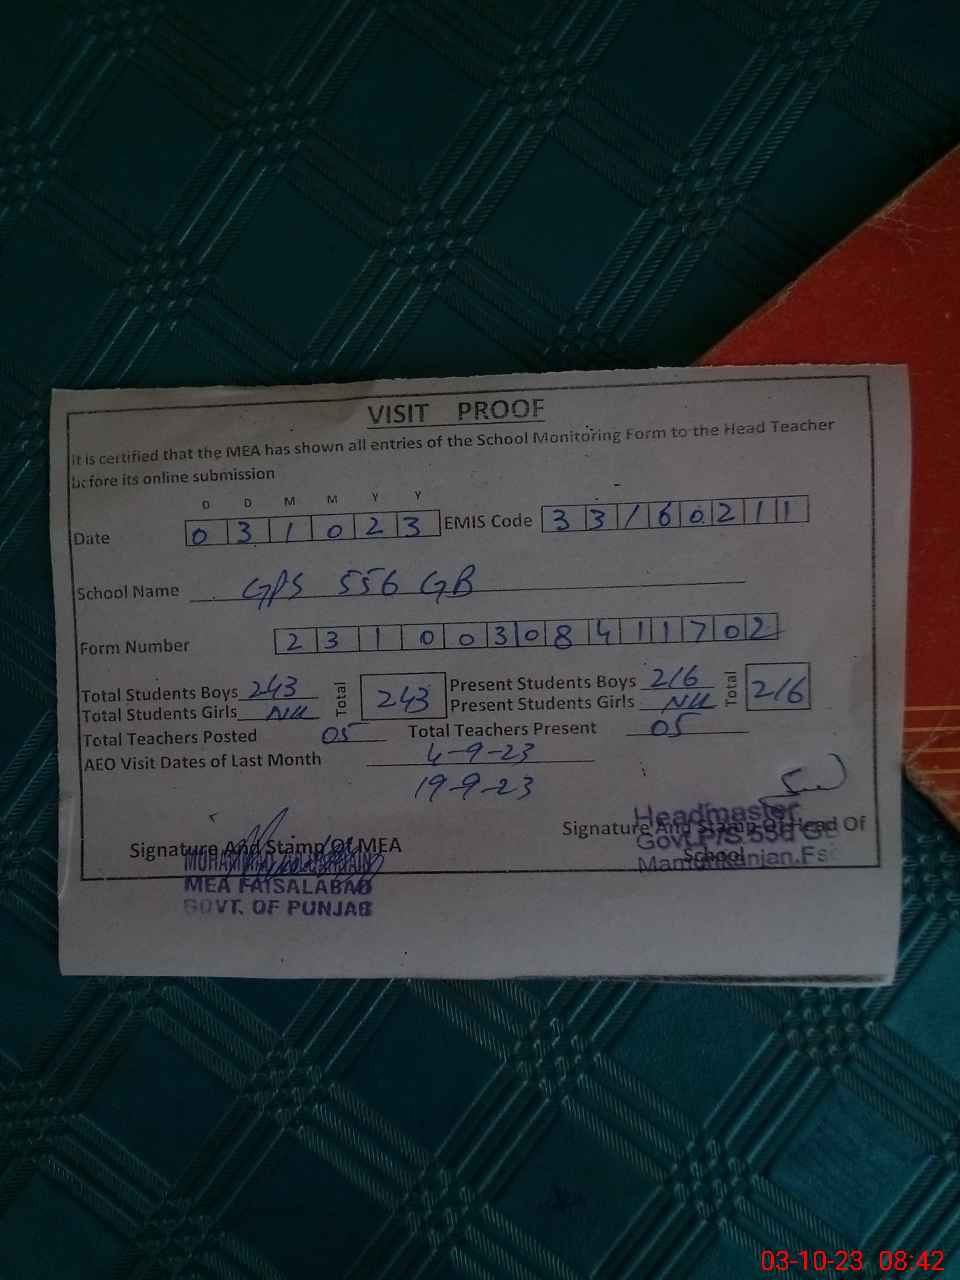 VISIT PROOF
It is certified that the MEA has shown all entries of the School Monitoring Form to the Head Teacher
before its online submission
D D M M Y Y
Date 0 3 1 0 2 3 EMIS Code 3 3 1 6 0 2 1 1
School Name GPS 556 GB
Form Number 2 3 1 0 0 3 0 8 4 1 1 7 0 2
Total Students Boys 243 Total 243 Present Students Boys 216 Total 216
Total Students Girls Nil Present Students Girls Nil
Total Teachers Posted 05 Total Teachers Present 05
AEO Visit Dates of Last Month 4-9-23
19-9-23
Signature And Stamp Of MEA
MUHAMMAD
MEA FAISALABAD
GOVT. OF PUNJAB
Signature And Stamp Of Head Of
School
Headmaster
Govt. P/S
Mamunkanjan
03-10-23 08:42